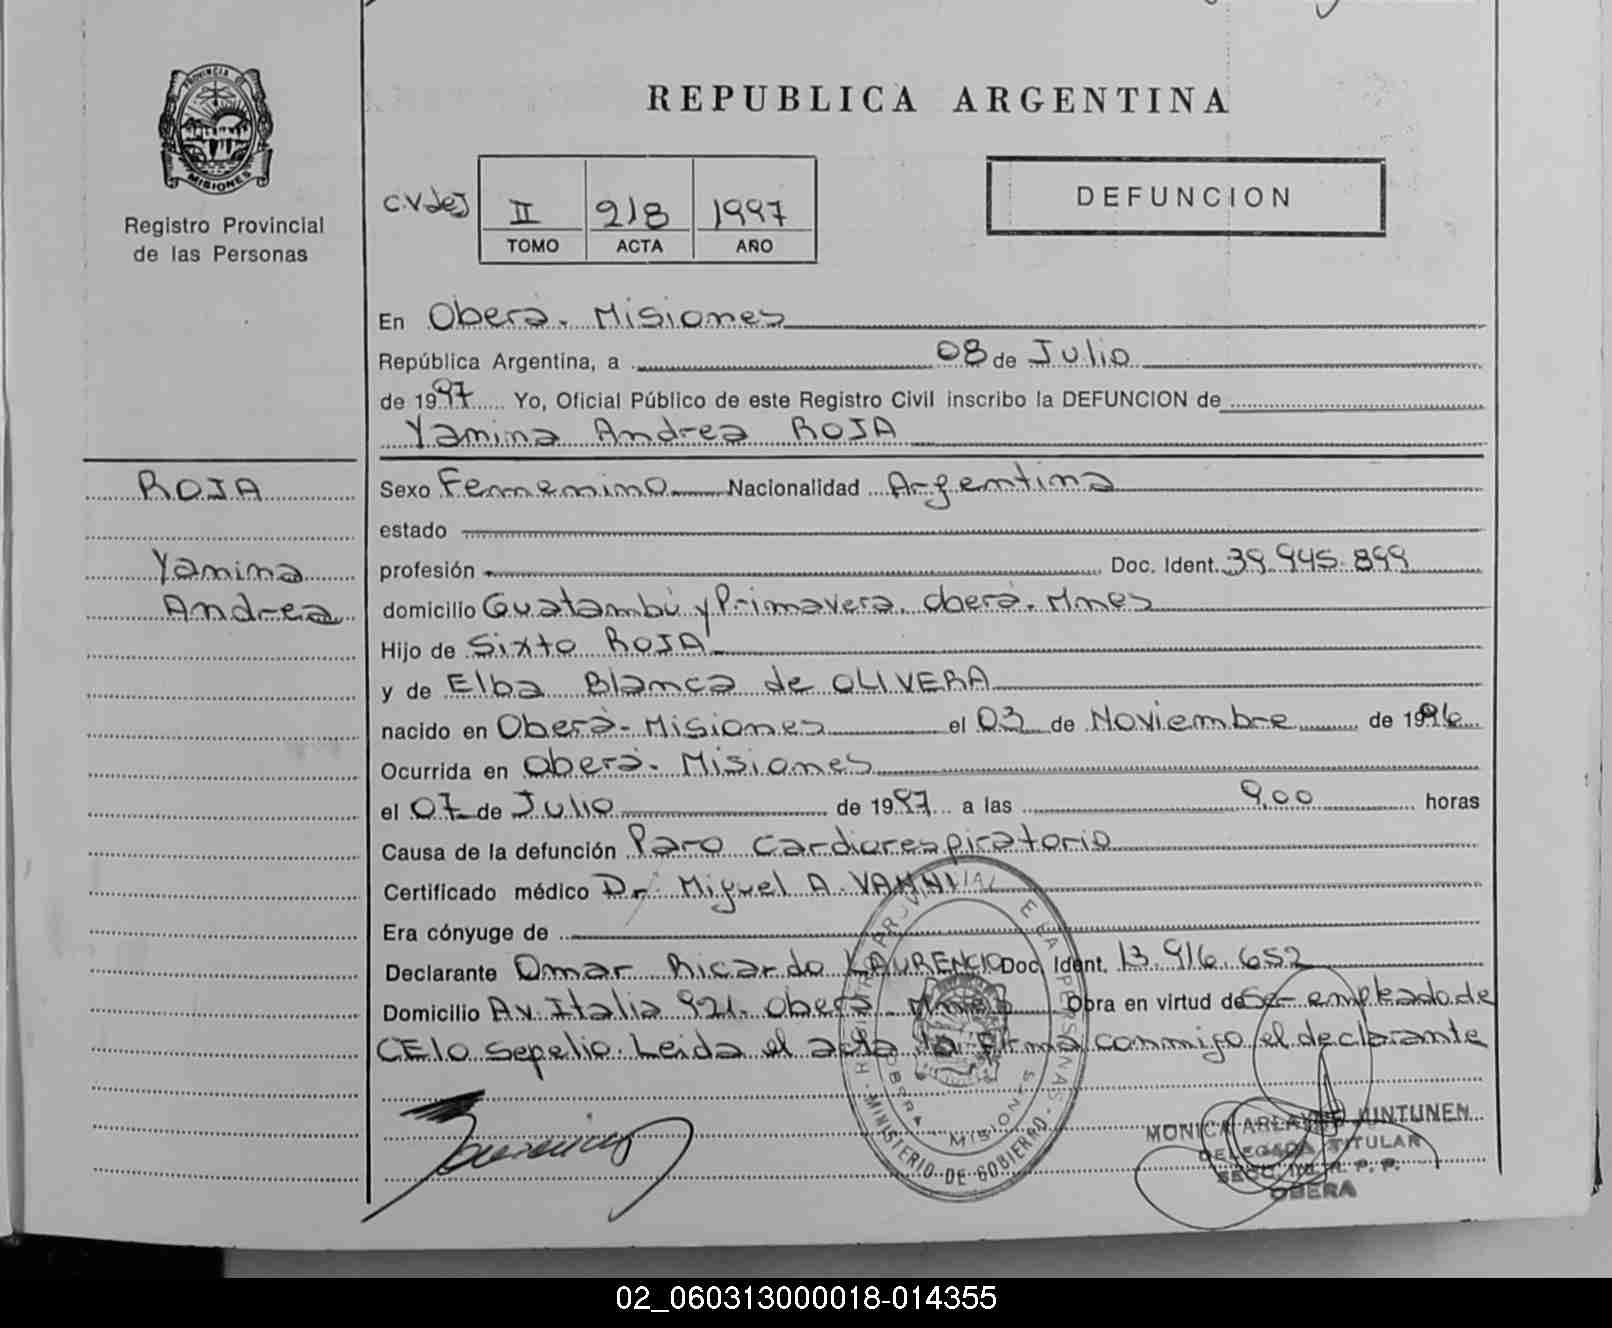 PROVINCIA DE
MISIONES
Registro Provincial
de las Personas
REPUBLICA ARGENTINA
C.V de J
II 218 1997
TOMO ACTA AÑO
DEFUNCION
En Oberà. Misiones
República Argentina, a 08 de Julio
de 1997 Yo, Oficial Público de este Registro Civil inscribo la DEFUNCION de
Yamina Andrea ROJA
ROJA
Yamina
Andrea
Sexo Femenino Nacionalidad Argentina
estado
profesión Doc. Ident. 39.945.899
domicilio Guatambú y Primavera. Oberà. Mnes
Hijo de Sixto ROJA
y de Elba Blanca de OLIVERA
nacido en Oberà - Misiones el 03 de Noviembre de 1996
Ocurrida en Oberà. Misiones
el 07 de Julio de 1997 a las 9,00 horas
Causa de la defunción Paro Cardiorespiratorio
Certificado médico Dr. Miguel A. VANNI
Era cónyuge de
Declarante Omar Ricardo LAURENCIO Doc. Ident. 13.916.652
Domicilio Av. Italia 921. Oberà. Mnes Obra en virtud de Ser empleado de
CELO Sepelio. Leida el acta la firma conmigo el declarante
MINISTERIO DE GOBIERNO
OBERA MISIONES
MONICA JUNTUNEN
DELEGADA TITULAR
OBERA
02_060313000018-014355